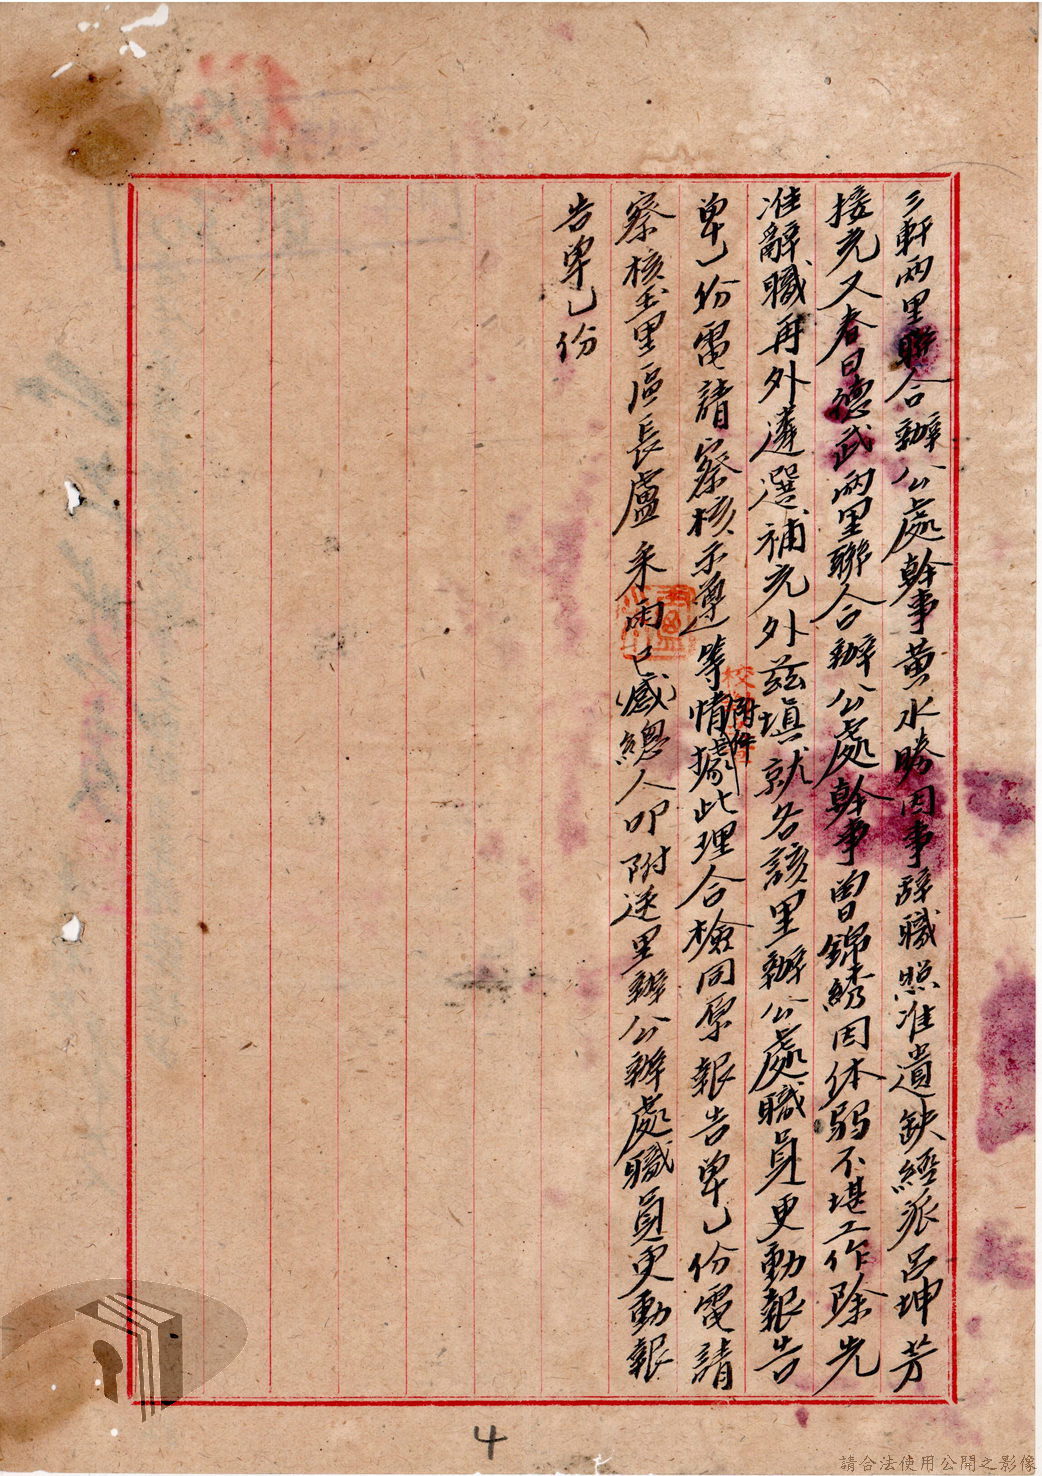 三軒兩里聯合辦公處幹事黃水勝因事辞職照准遺缺經派呂坤芳
接充又春日德武兩里聯合辦公處幹事曾錦綉因体弱不堪工作除先
准辭職再外遴選補充外茲填就各該里辦公處職員更動報告
單乙份電請察核示遵等情附件據此理合檢同原報告單乙份電請
察核玉里區長盧釆雨已(感)總人叩附送里辦公辦處職員更動報
告單乙份
4
請合法使用公開之影像